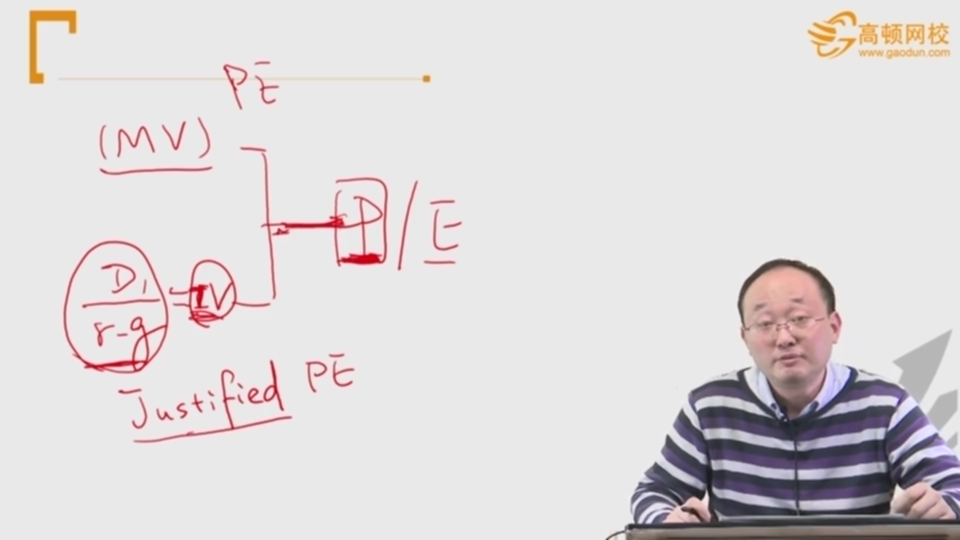 高顿网校
www.gaodun.com
PE
(MV)
P/E
D₁/r-g = IV
Justified PE